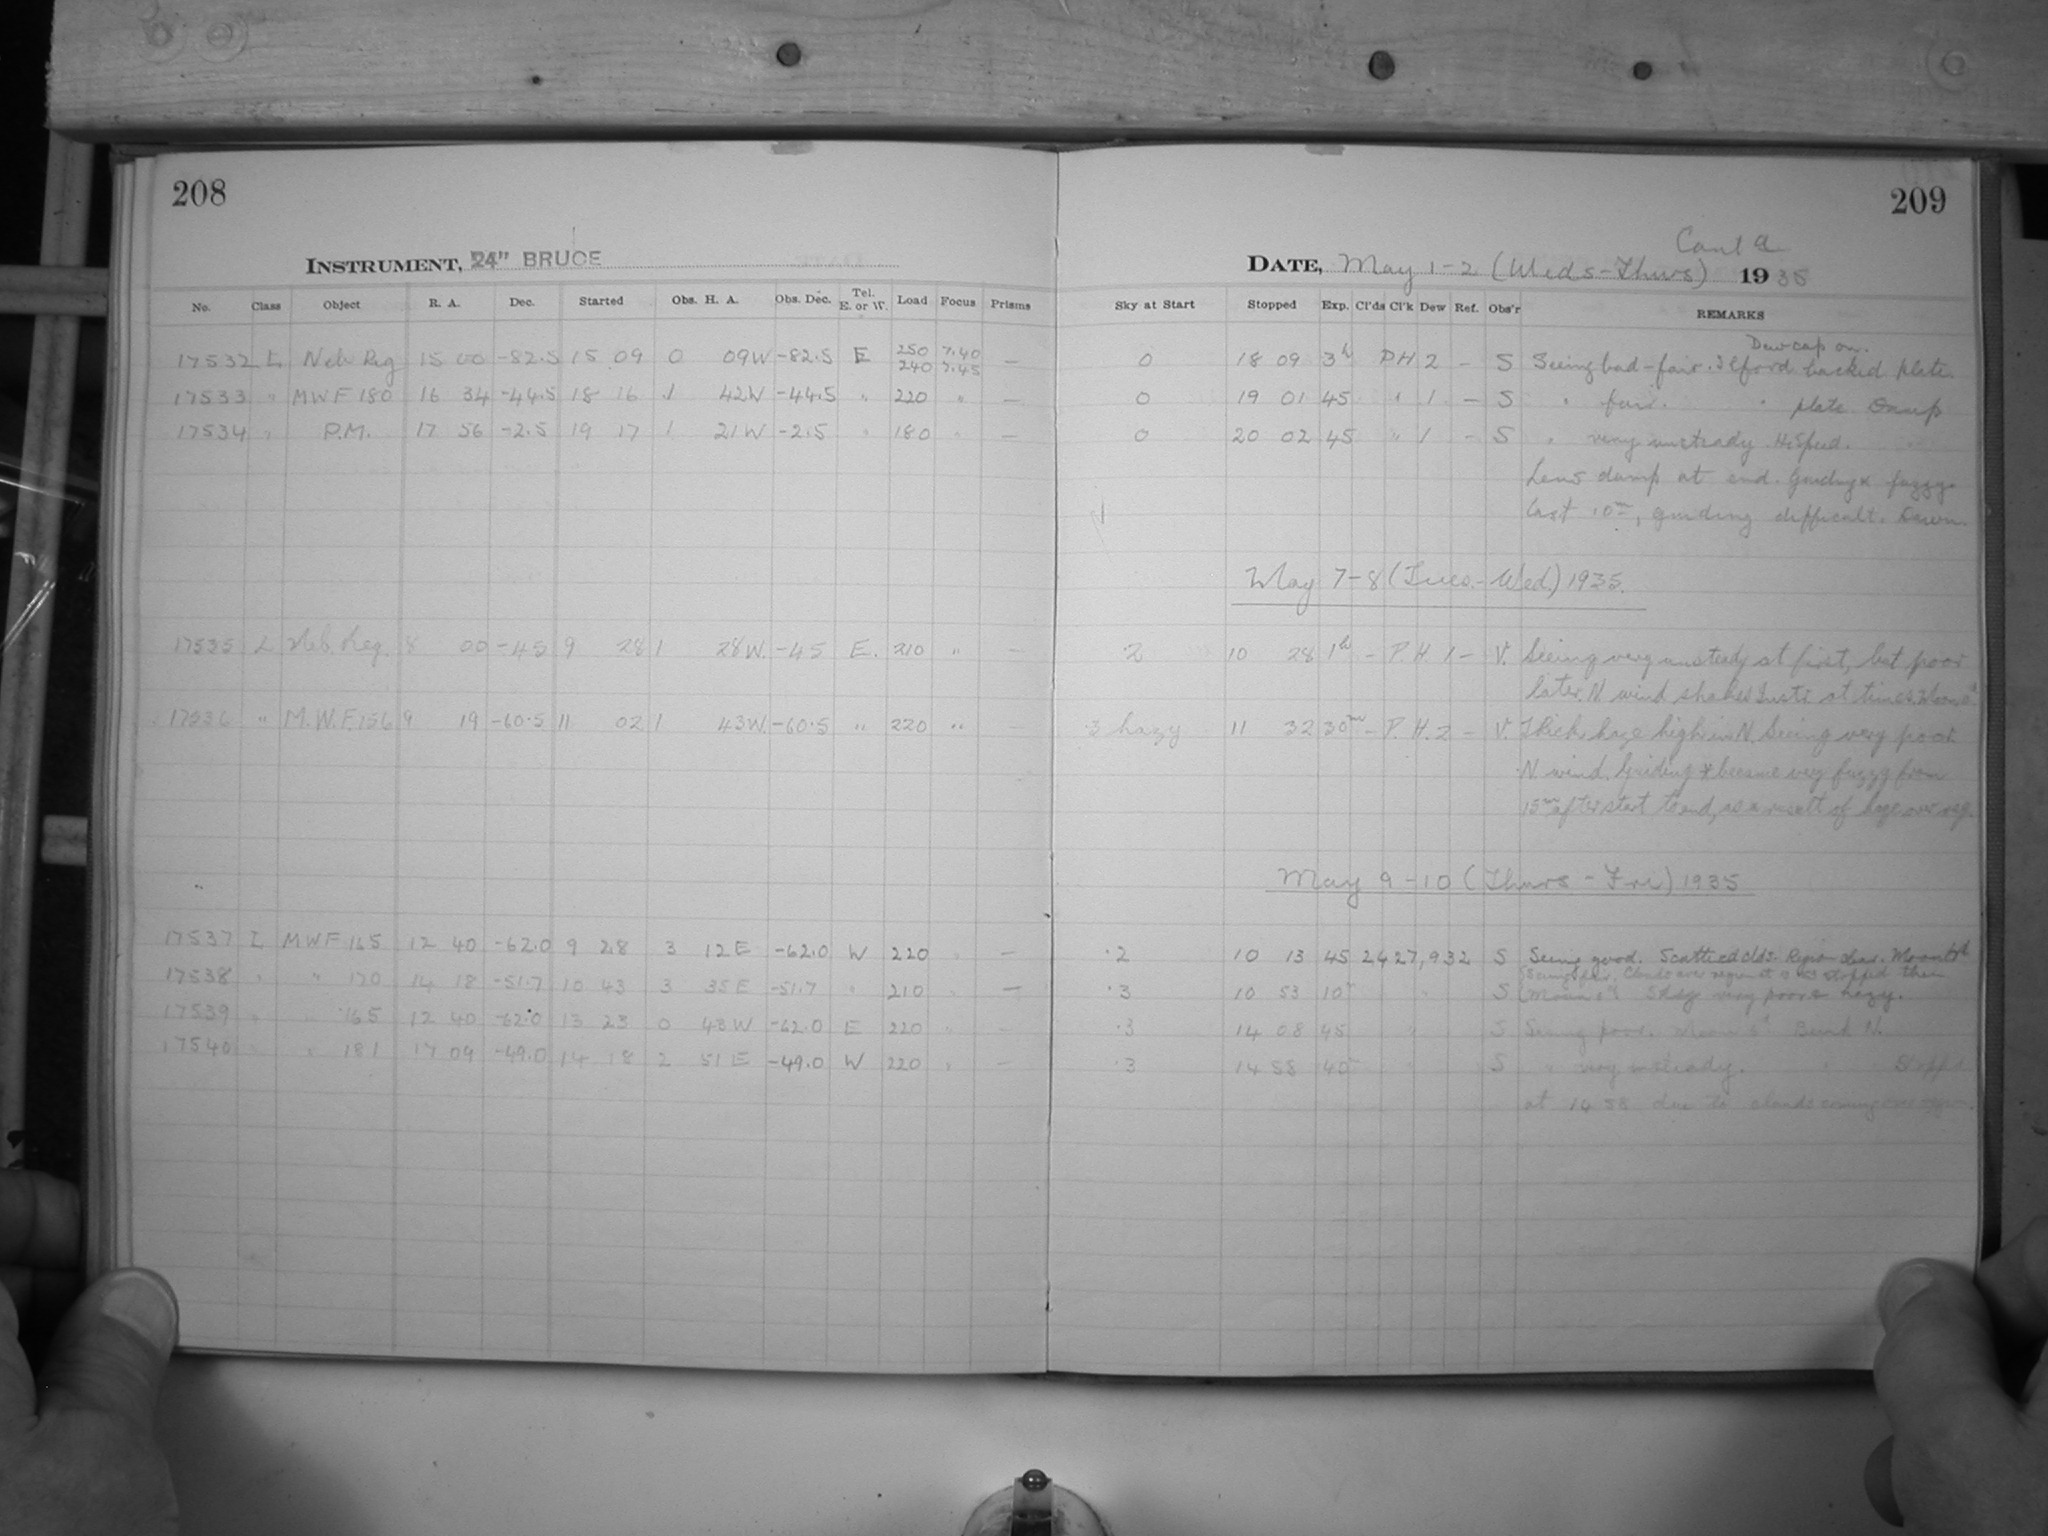 208
209
Cont'd
INSTRUMENT, 24" BRUCE
DATE, May 1-2 (Weds-Thurs) 1935
No. Class Object R. A. Dec. Started Obs. H. A. Obs. Dec. Tel. E. or W. Load Focus Prisms
Sky at Start Stopped Exp. Cl'ds Cl'k Dew Ref. Obs'r REMARKS
Dewcap on.
17532 L Neb Reg 15 00 -82.5 15 09 0 09W -82.5 E 250 240 7.40 7.45 —
0 18 09 3h PH 2 - S Seeing bad-fair. Ilford backed plate.
17533 " MWF 180 16 34 -44.5 18 16 1 42W -44.5 " 220 " —
0 19 01 45 " 1 - S " fair. " plate. Damp
17534 " P.M. 17 56 -2.5 19 17 1 21W -2.5 " 180 " —
0 20 02 45 " 1 - S " very unsteady. H. Speed. "
Lens damp at end. Guiding * fuzzy
last 10m, guiding difficult. Dawn
May 7-8 (Tues.-Wed.) 1935.
17535 L Neb. Reg. 8 00 -45 9 28 1 28W. -45 E. 210 " —
.2 10 28 1h - P.H. 1 - V. Seeing very unsteady at first, but poor
later. N wind shakes at times.
17536 " M.W.F. 156 9 19 -60.5 11 02 1 43W. -60.5 " 220 " —
.3 hazy 11 32 30m - P.H. 2 - V. Thick haze high in N. Seeing very poor.
N wind. Guiding * became very fuzzy from
15m after start to end, as a result of haze over reg.
May 9-10 (Thurs - Fri) 1935
17537 L MWF 165 12 40 -62.0 9 28 3 12E -62.0 W 220 " —
.2 10 13 45 24 27,932 S Seeing good. Scattered clds. Region clear. Moon
17538 " " 170 14 18 -51.7 10 43 3 35E -51.7 " 210 " —
.3 10 53 10m " S Seeing fair. Clouds over region at stopped then
Moon Sky very poor & hazy.
17539 " " 165 12 40 -62.0 13 23 0 43W -62.0 E 220 " —
.3 14 08 45 " S Seeing poor. Moon N.
17540 " " 181 17 09 -49.0 14 18 2 51E -49.0 W 220 " —
.3 14 58 40m " S " very unsteady. " Stopped
at 14 58 due to clouds coming over region.